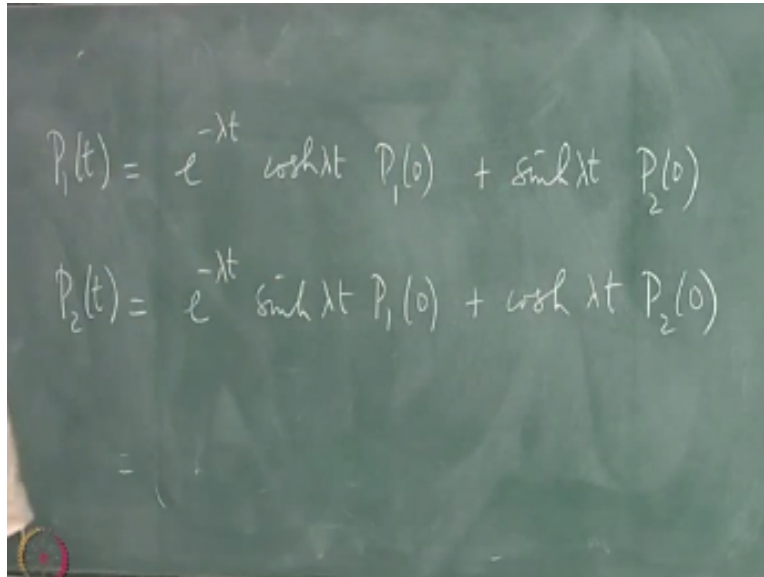 P₁(t) = e^{-λt} cosh λt P₁(0) + sinh λt P₂(0)
P₂(t) = e^{-λt} sinh λt P₁(0) + cosh λt P₂(0)
= (